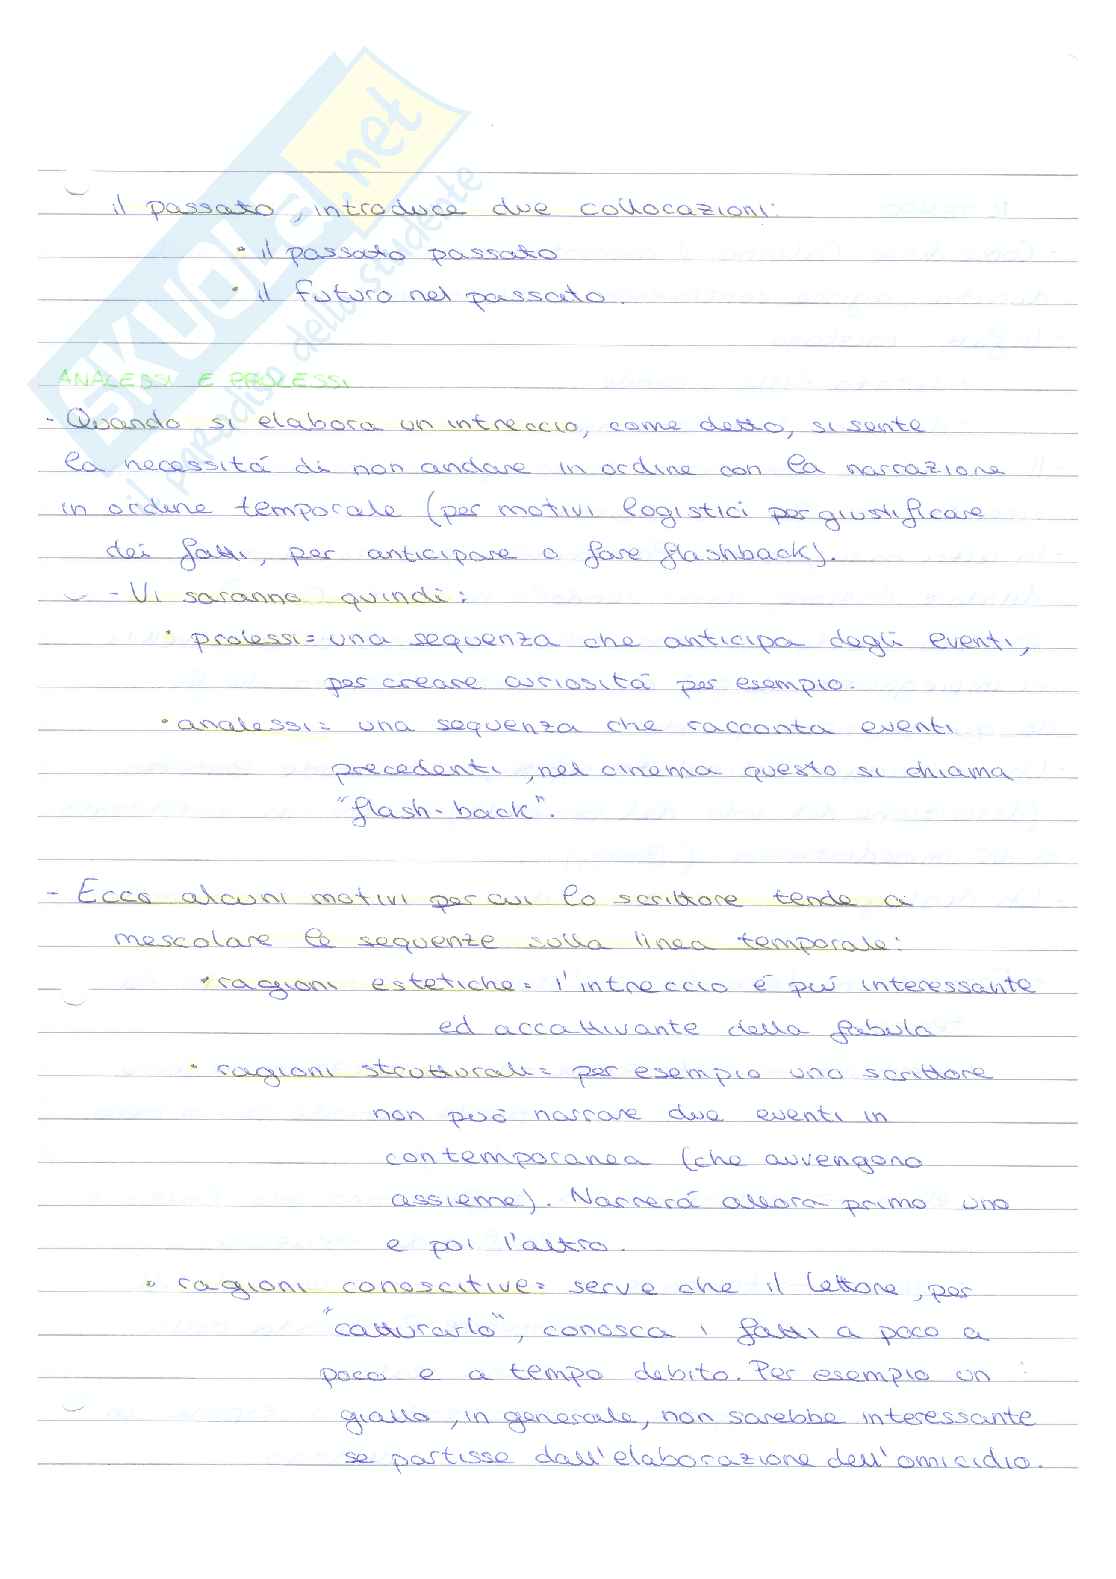 SKUOLA.net
il paradiso dello studente
il passato, introduce due collocazioni:
• il passato passato
• il futuro nel passato.
ANALESSI E PROLESSI
- Quando si elabora un intreccio, come detto, si sente
la necessitá di non andare in ordine con la narrazione
in ordine temporale (per motivi logistici per giustificare
dei fatti, per anticipare o fare flashback).
- Vi saranno quindi:
• prolessi = una sequenza che anticipa degli eventi,
per creare curiositá per esempio.
• analessi = una sequenza che racconta eventi
precedenti, nel cinema questo si chiama
"flash-back".
- Ecco alcuni motivi per cui lo scrittore tende a
mescolare le sequenze sulla linea temporale:
• ragioni estetiche = l'intreccio é piú interessante
ed accattivante della fabula
• ragioni strutturali = per esempio uno scrittore
non puó narrare due eventi in
contemporanea (che avvengono
assieme). Narrerá allora primo uno
e poi l'altro.
• ragioni conoscitive = serve che il lettore, per
"catturarlo", conosca i fatti a poco a
poco e a tempo debito. Per esempio un
giallo, in generale, non sarebbe interessante
se partisse dall'elaborazione dell'omicidio.